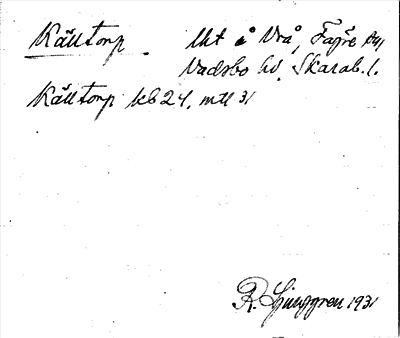 Källtorp. Uht å Vrå, Fägre sn,
Vadsbo hd, Skarab. l.
Källtorp kb 24, mtl 31
R. Ljunggren 1931